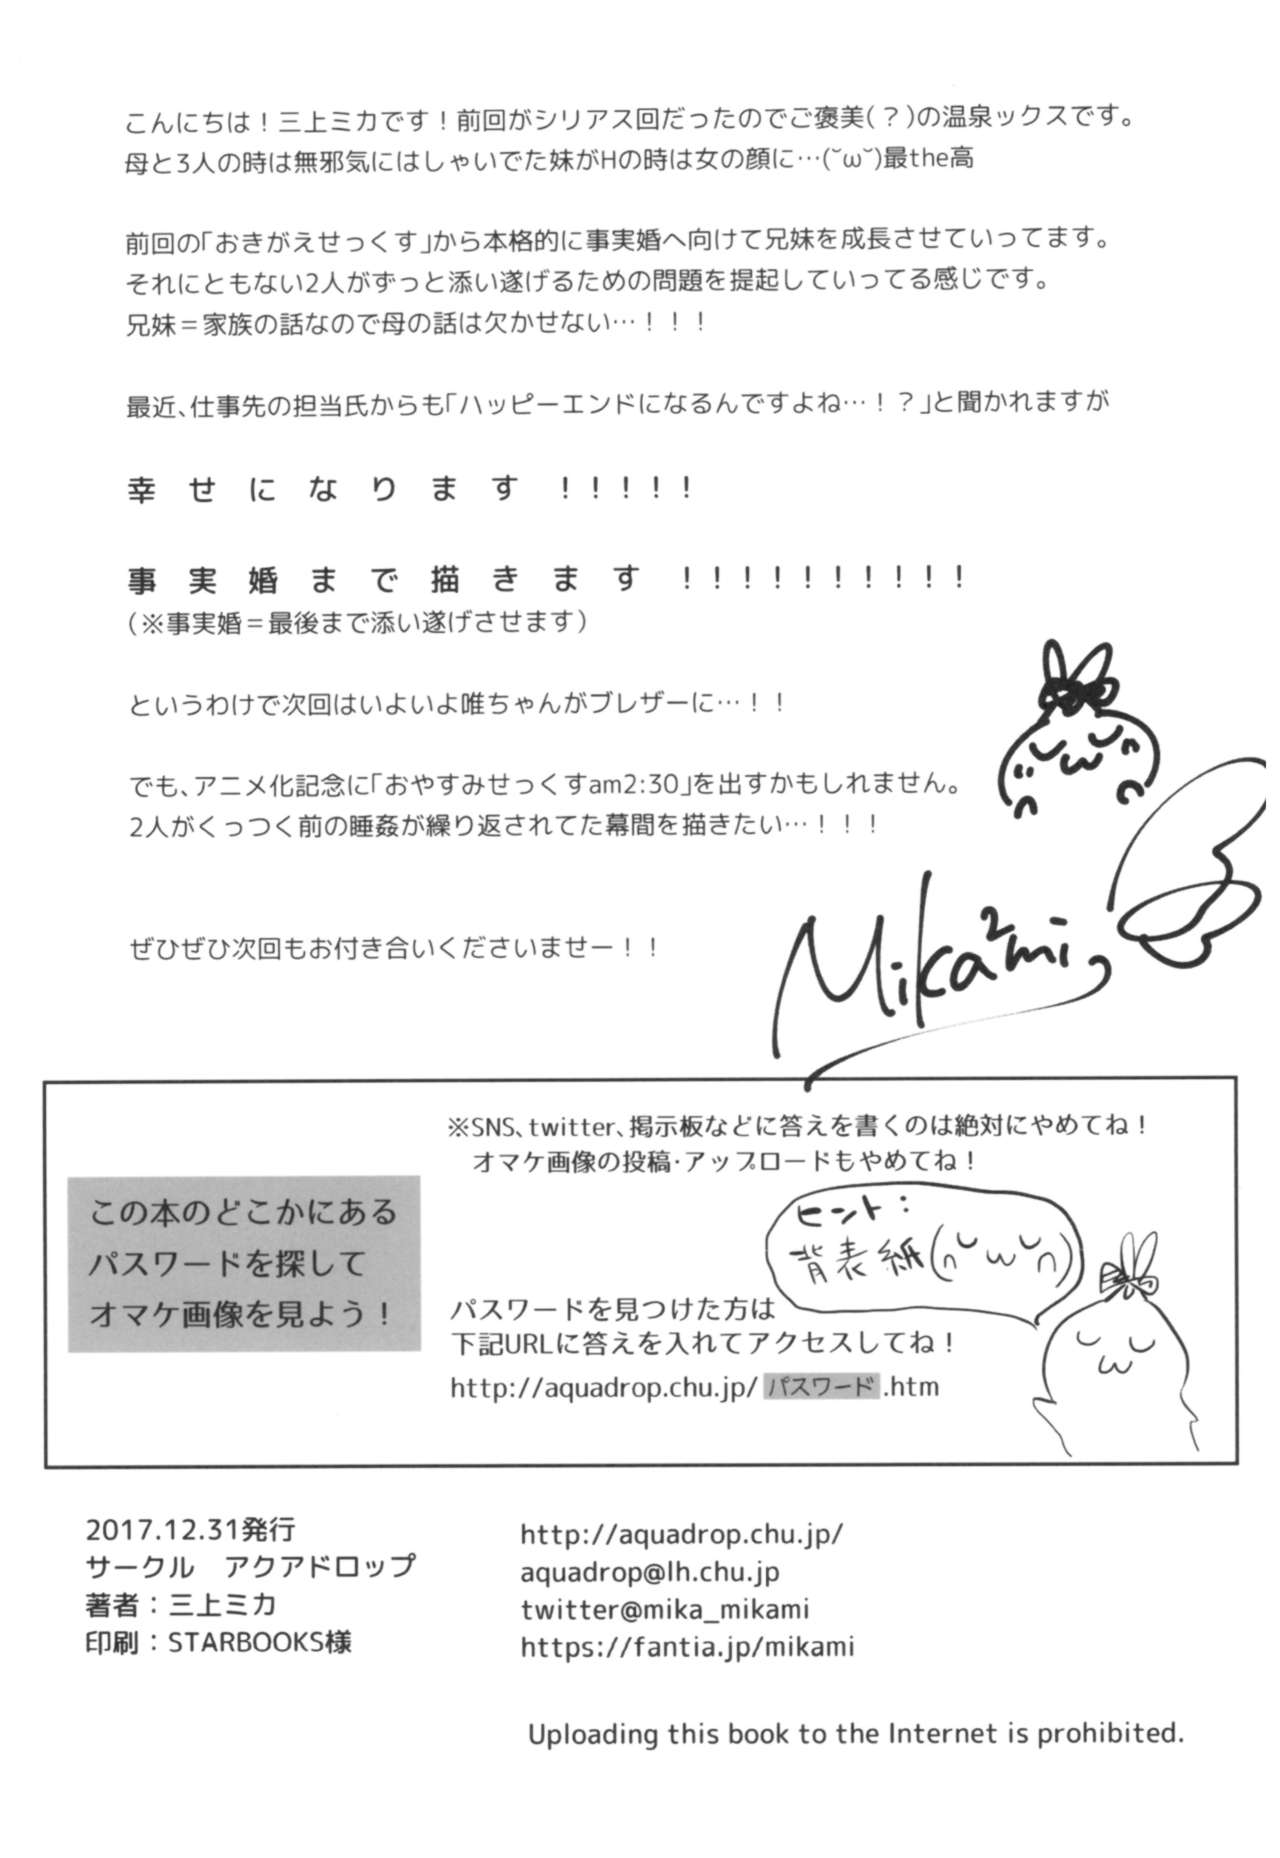 こんにちは！三上ミカです！前回がシリアス回だったのでご褒美(？)の温泉ックスです。
母と3人の時は無邪気にはしゃいでた妹がHの時は女の顔に…(˘ω˘)最the高
前回の「おきがえせっくす」から本格的に事実婚へ向けて兄妹を成長させていってます。
それにともない2人がずっと添い遂げるための問題を提起していってる感じです。
兄妹＝家族の話なので母の話は欠かせない…！！！
最近、仕事先の担当氏からも「ハッピーエンドになるんですよね…！？」と聞かれますが
幸せになります！！！！！
事実婚まで描きます！！！！！！！！！！
（※事実婚＝最後まで添い遂げさせます）
というわけで次回はいよいよ唯ちゃんがブレザーに…！！
でも、アニメ化記念に「おやすみせっくすam2:30」を出すかもしれません。
2人がくっつく前の睡姦が繰り返されてた幕間を描きたい…！！！
ぜひぜひ次回もお付き合いくださいませー！！
Mika²mi
※SNS、twitter、掲示板などに答えを書くのは絶対にやめてね！
オマケ画像の投稿・アップロードもやめてね！
この本のどこかにある
パスワードを探して
オマケ画像を見よう！
ヒント：
背表紙(∩˘ω˘∩)
パスワードを見つけた方は
下記URLに答えを入れてアクセスしてね！
http://aquadrop.chu.jp/パスワード.htm
2017.12.31発行
サークル　アクアドロップ
著者：三上ミカ
印刷：STARBOOKS様
http://aquadrop.chu.jp/
aquadrop@lh.chu.jp
twitter@mika_mikami
https://fantia.jp/mikami
Uploading this book to the Internet is prohibited.